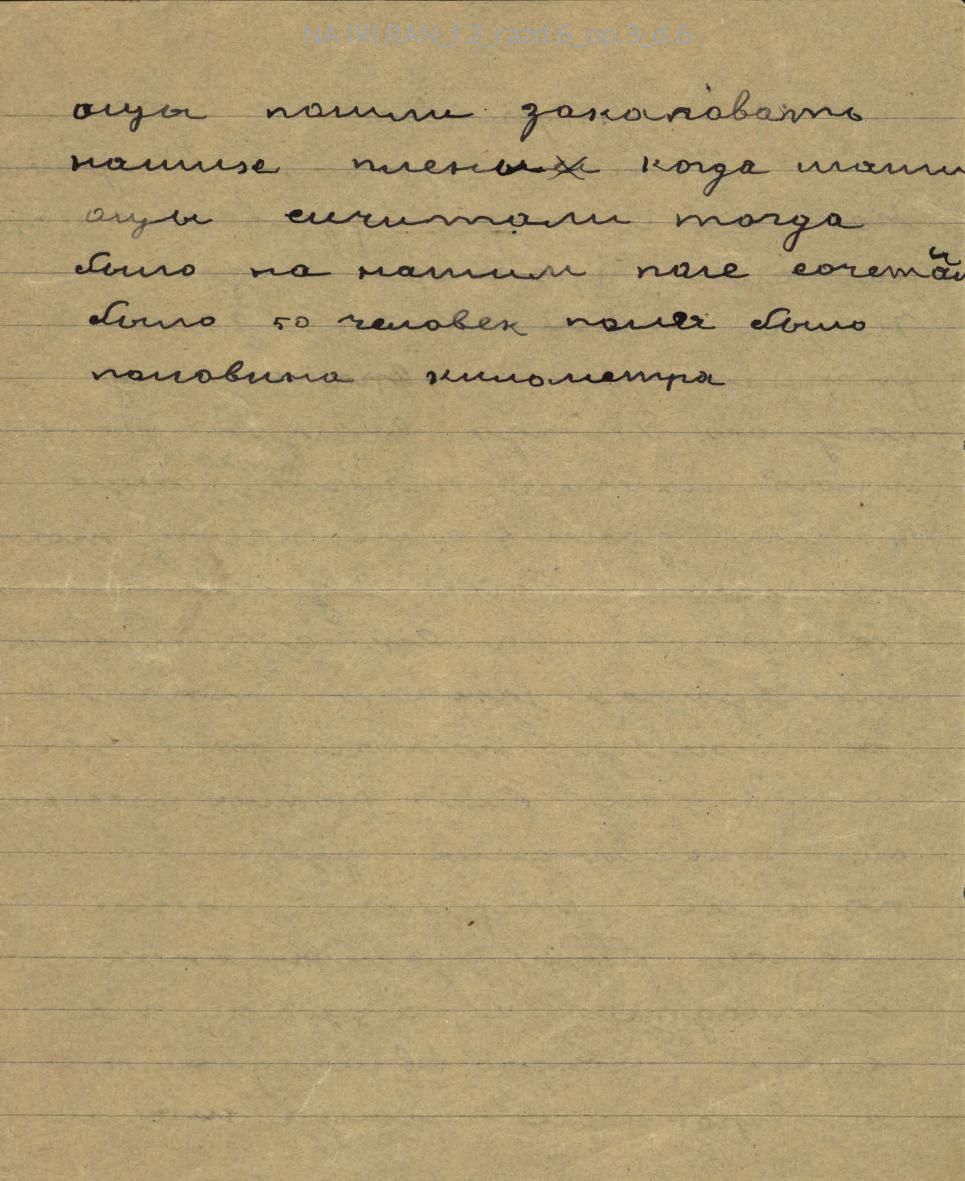 NA IRI RAN_f.2_razd.6_op.3_d.6
отцы пошли закаповать
наших пленых когда наши
отцы сичитали тогда
было на нашим поле
было 50 человек поля было
половина километра